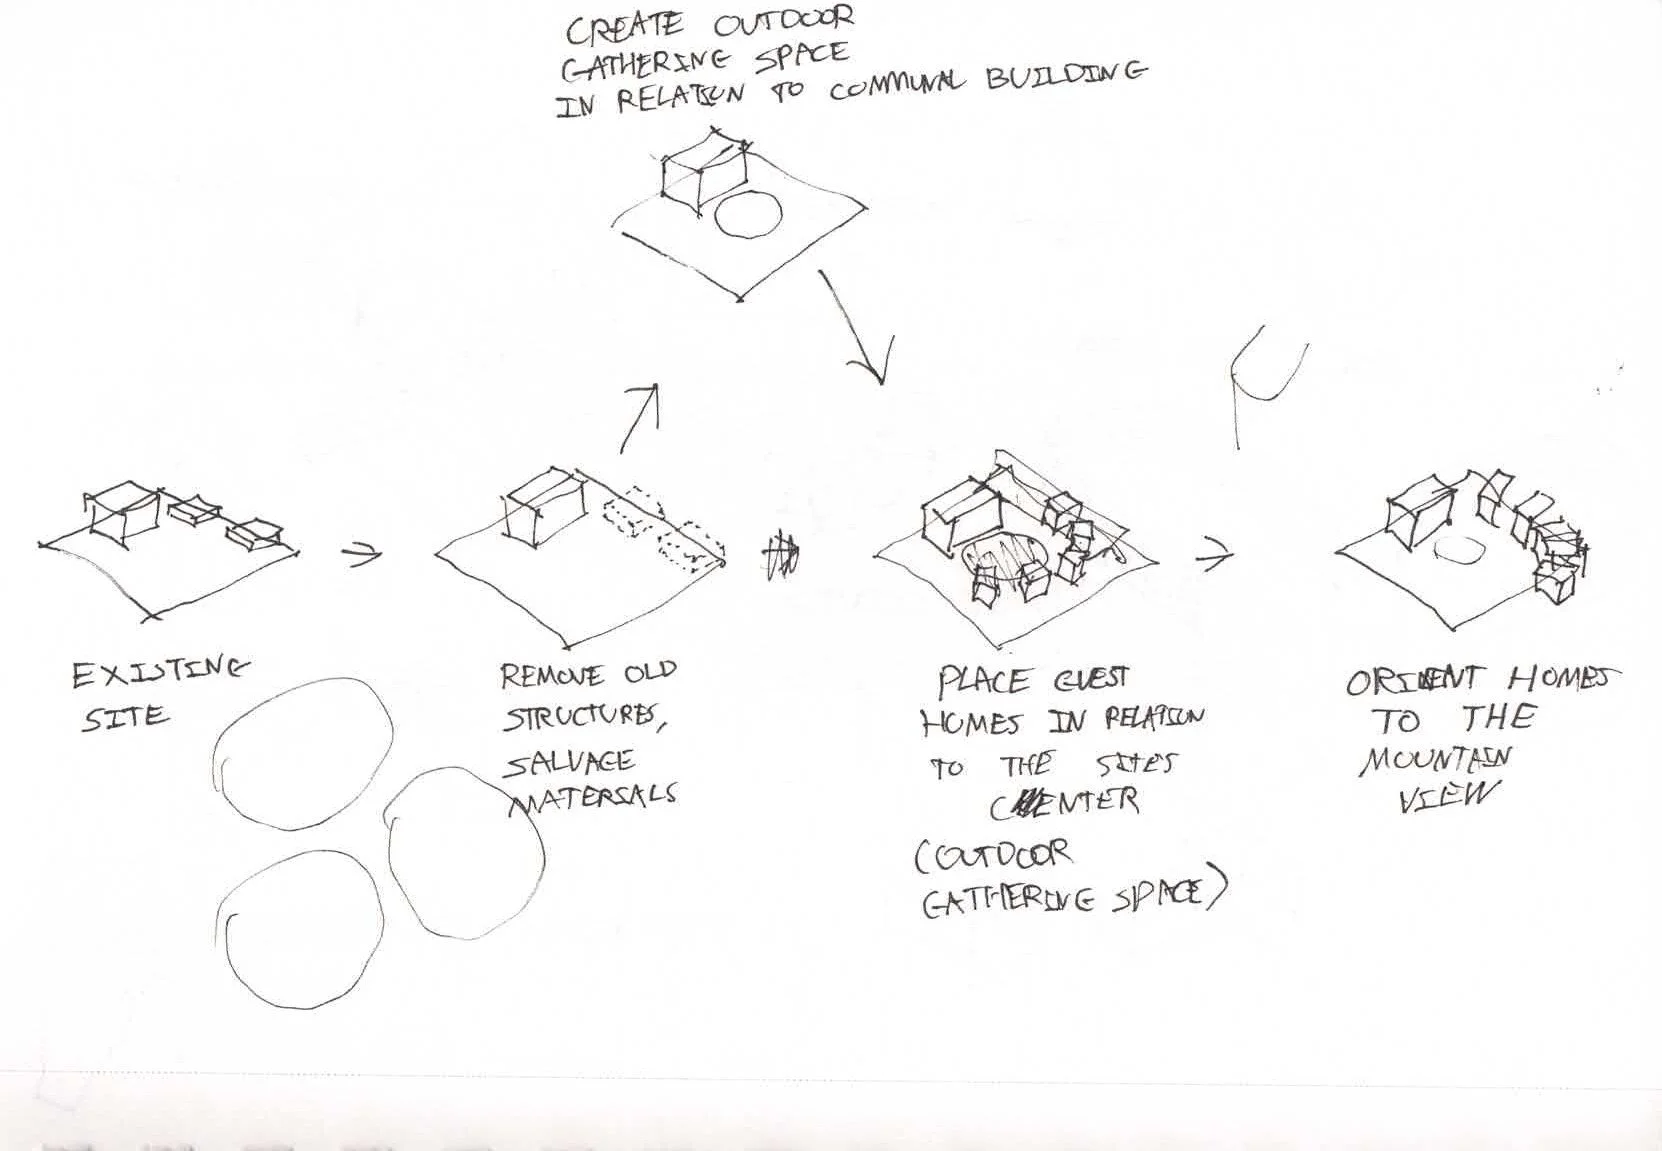 CREATE OUTDOOR
GATHERING SPACE
IN RELATION TO COMMUNAL BUILDING
EXISTING
SITE
REMOVE OLD
STRUCTURES,
SALVAGE
MATERIALS
PLACE GUEST
HOMES IN RELATION
TO THE SITES
CENTER
(OUTDOOR
GATHERING SPACE)
ORIENT HOMES
TO THE
MOUNTAIN
VIEW